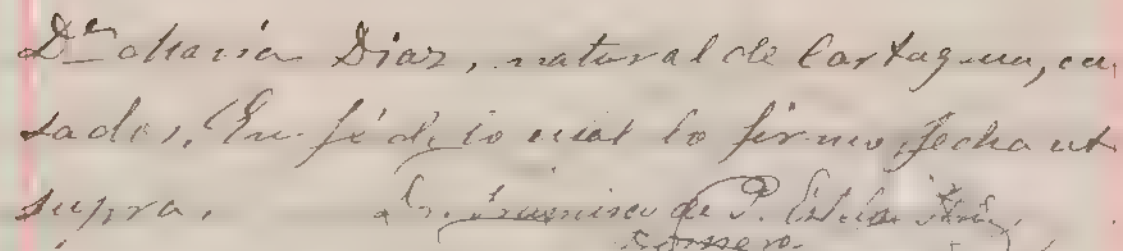 Dña Maria Diaz, natural de Cartagena, ca,
sados, En fé de lo cual lo firmo, fecha ut
supra. Dr. Francisco de P.
Romero.